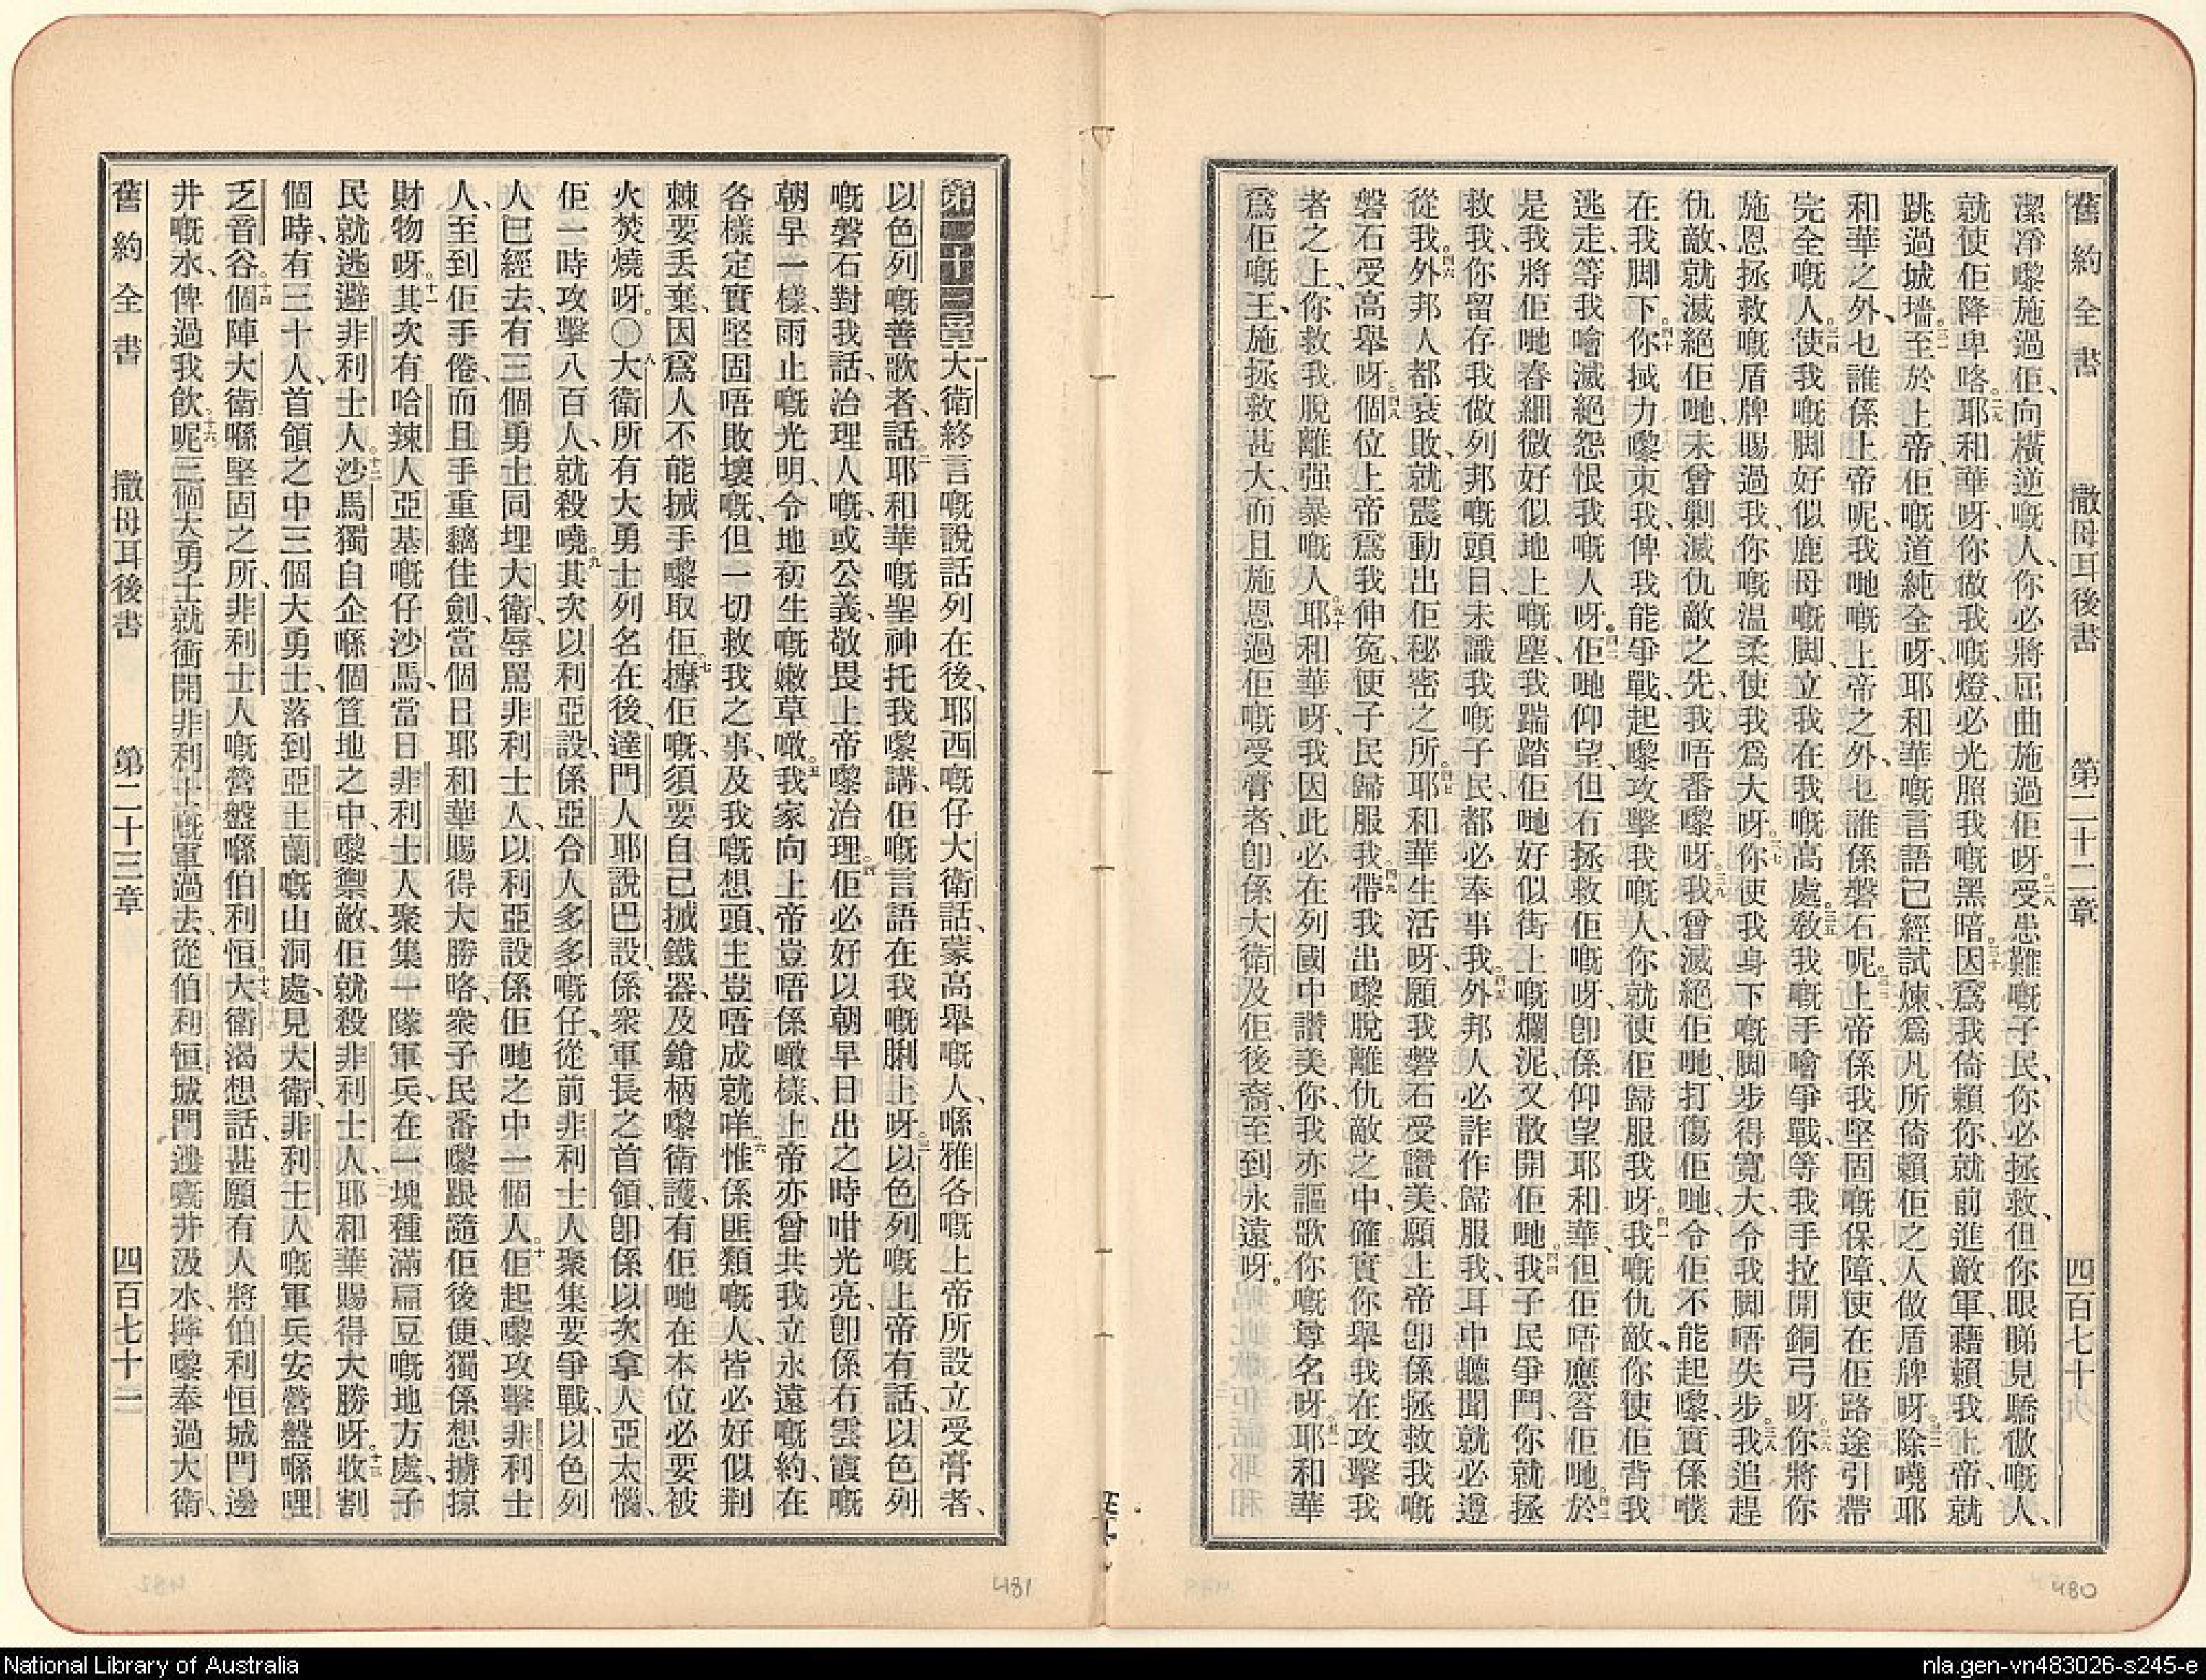 舊約全書 撒母耳後書 第二十二章 四百七十九
潔淨嚟施過佢、向橫逆嘅人、你必將屈曲施過佢呀。二八受患難嘅子民、你必拯救、但你眼睇見驕傲嘅人、
就使佢降卑咯。二九耶和華呀、你做我嘅燈、必光照我嘅黑暗。三十因爲我倚賴你、就前進敵軍、藉賴我上帝、就
跳過城墻。三一至於上帝、佢嘅道純全呀、耶和華嘅言語已經試煉、爲凡所倚賴佢之人做盾牌呀。三二除曉耶
和華之外、乜誰係上帝呢、我哋嘅上帝之外、乜誰係磐石呢。三三上帝係我堅固嘅保障、使在佢路途引帶
完全嘅人。三四使我嘅脚好似鹿母嘅脚、立我在我嘅高處。三五敎我嘅手噲爭戰、等我手拉開銅弓呀。三六你將你
施恩拯救嘅盾牌賜過我、你嘅溫柔使我爲大呀。三七你使我身下嘅脚步得寬大、令我脚唔失步。三八我追趕
仇敵、就滅絕佢哋、未曾剿滅仇敵之先、我唔番嚟呀。三九我曾滅絕佢哋、打傷佢哋、令佢不能起嚟、實係噗
在我脚下。四十你搣力嚟束我、俾我能爭戰、起嚟攻擊我嘅人、你就使佢歸服我呀。四一我嘅仇敵、你使佢背我
逃走、等我噲滅絕怨恨我嘅人呀。四二佢哋仰望、但冇拯救佢嘅呀、卽係仰望耶和華、但佢唔應答佢哋。四三於
是我將佢哋舂細微好似地上嘅塵、我踹踏佢哋好似街上嘅爛泥、又散開佢哋。四四我子民爭鬥、你就拯
救我、你留存我做列邦嘅頭目、未識我嘅子民、都必奉事我。四五外邦人必詐作歸服我、耳中聽聞就必遵
從我。四六外邦人都衰敗、就震動出佢秘密之所。四七耶和華生活呀、願我磐石受讚美、願上帝卽係拯救我嘅
磐石受高舉呀。四八個位上帝爲我伸冤、使子民歸服我。四九帶我出嚟脫離仇敵之中、確實你舉我在攻擊我
者之上、你救我脫離强暴嘅人。五十耶和華呀、我因此必在列國中讚美你、我亦謳歌你嘅尊名呀。五一耶和華
爲佢嘅王、施拯救甚大、而且施恩過佢嘅受膏者、卽係大衛及佢後裔、至到永遠呀。
第二十三章一大衛終言嘅說話列在後、耶西嘅仔大衛話、蒙高舉嘅人、喺雅各嘅上帝所設立受膏者、
以色列嘅善歌者、話。二耶和華嘅聖神托我嚟講、佢嘅言語在我嘅脷上呀。三以色列嘅上帝有話、以色列
嘅磐石對我話、治理人嘅、或公義、敬畏上帝嚟治理。四佢必好以朝早日出之時咁光亮、卽係冇雲霞嘅
朝早一樣、雨止嘅光明、令地初生嘅嫩草噉。五我家向上帝豈唔係噉樣、上帝亦曾共我立永遠嘅約、在
各樣定實堅固唔敗壞嘅、但一切救我之事、及我嘅想頭、主豈唔成就咩。六惟係匪類嘅人、皆必好似荆
棘要丢棄、因爲人不能搣手嚟取佢。七摩佢嘅、須要自己搣鐵器、及鎗柄嚟衛護、有佢哋在本位必要被
火焚燒呀。○八大衛所有大勇士列名在後、達門人耶說巴設、係衆軍長之首領、卽係以次拿人亞太惱、
佢一時攻擊八百人、就殺曉。九其次以利亞設、係亞合人多多嘅仔、從前非利士人聚集要爭戰、以色列
人已經去、有三個勇士同埋大衛、辱罵非利士人、以利亞設係佢哋之中一個人。十佢起嚟攻擊非利士
人、至到佢手倦、而且手重黐住劍、當個日耶和華賜得大勝咯、衆子民番嚟跟隨佢後便、獨係想擄掠
財物呀。十一其次有哈辣人亞基嘅仔沙馬、當日非利士人聚集一隊軍兵、在一塊種滿扁豆嘅地方處、子
民就逃避非利士人。十二沙馬獨自企喺個笪地之中、嚟禦敵、佢就殺非利士人、耶和華賜得大勝呀。十三收割
個時、有三十人、首領之中三個大勇士、落到亞土蘭嘅山洞處、見大衛、非利士人嘅軍兵安營盤喺哩
乏音谷。十四個陣大衛喺堅固之所、非利士人嘅營盤喺伯利恒。十五大衛渴想話、甚願有人將伯利恒城門邊
井嘅水、俾過我飲呢。十六三個大勇士就衝開非利士嘅軍過去、從伯利恒城門邊嘅井汲水、擰嚟奉過大衛、
舊約全書 撒母耳後書 第二十三章 四百七十二
481
480
National Library of Australia
nla.gen-vn483026-s245-e